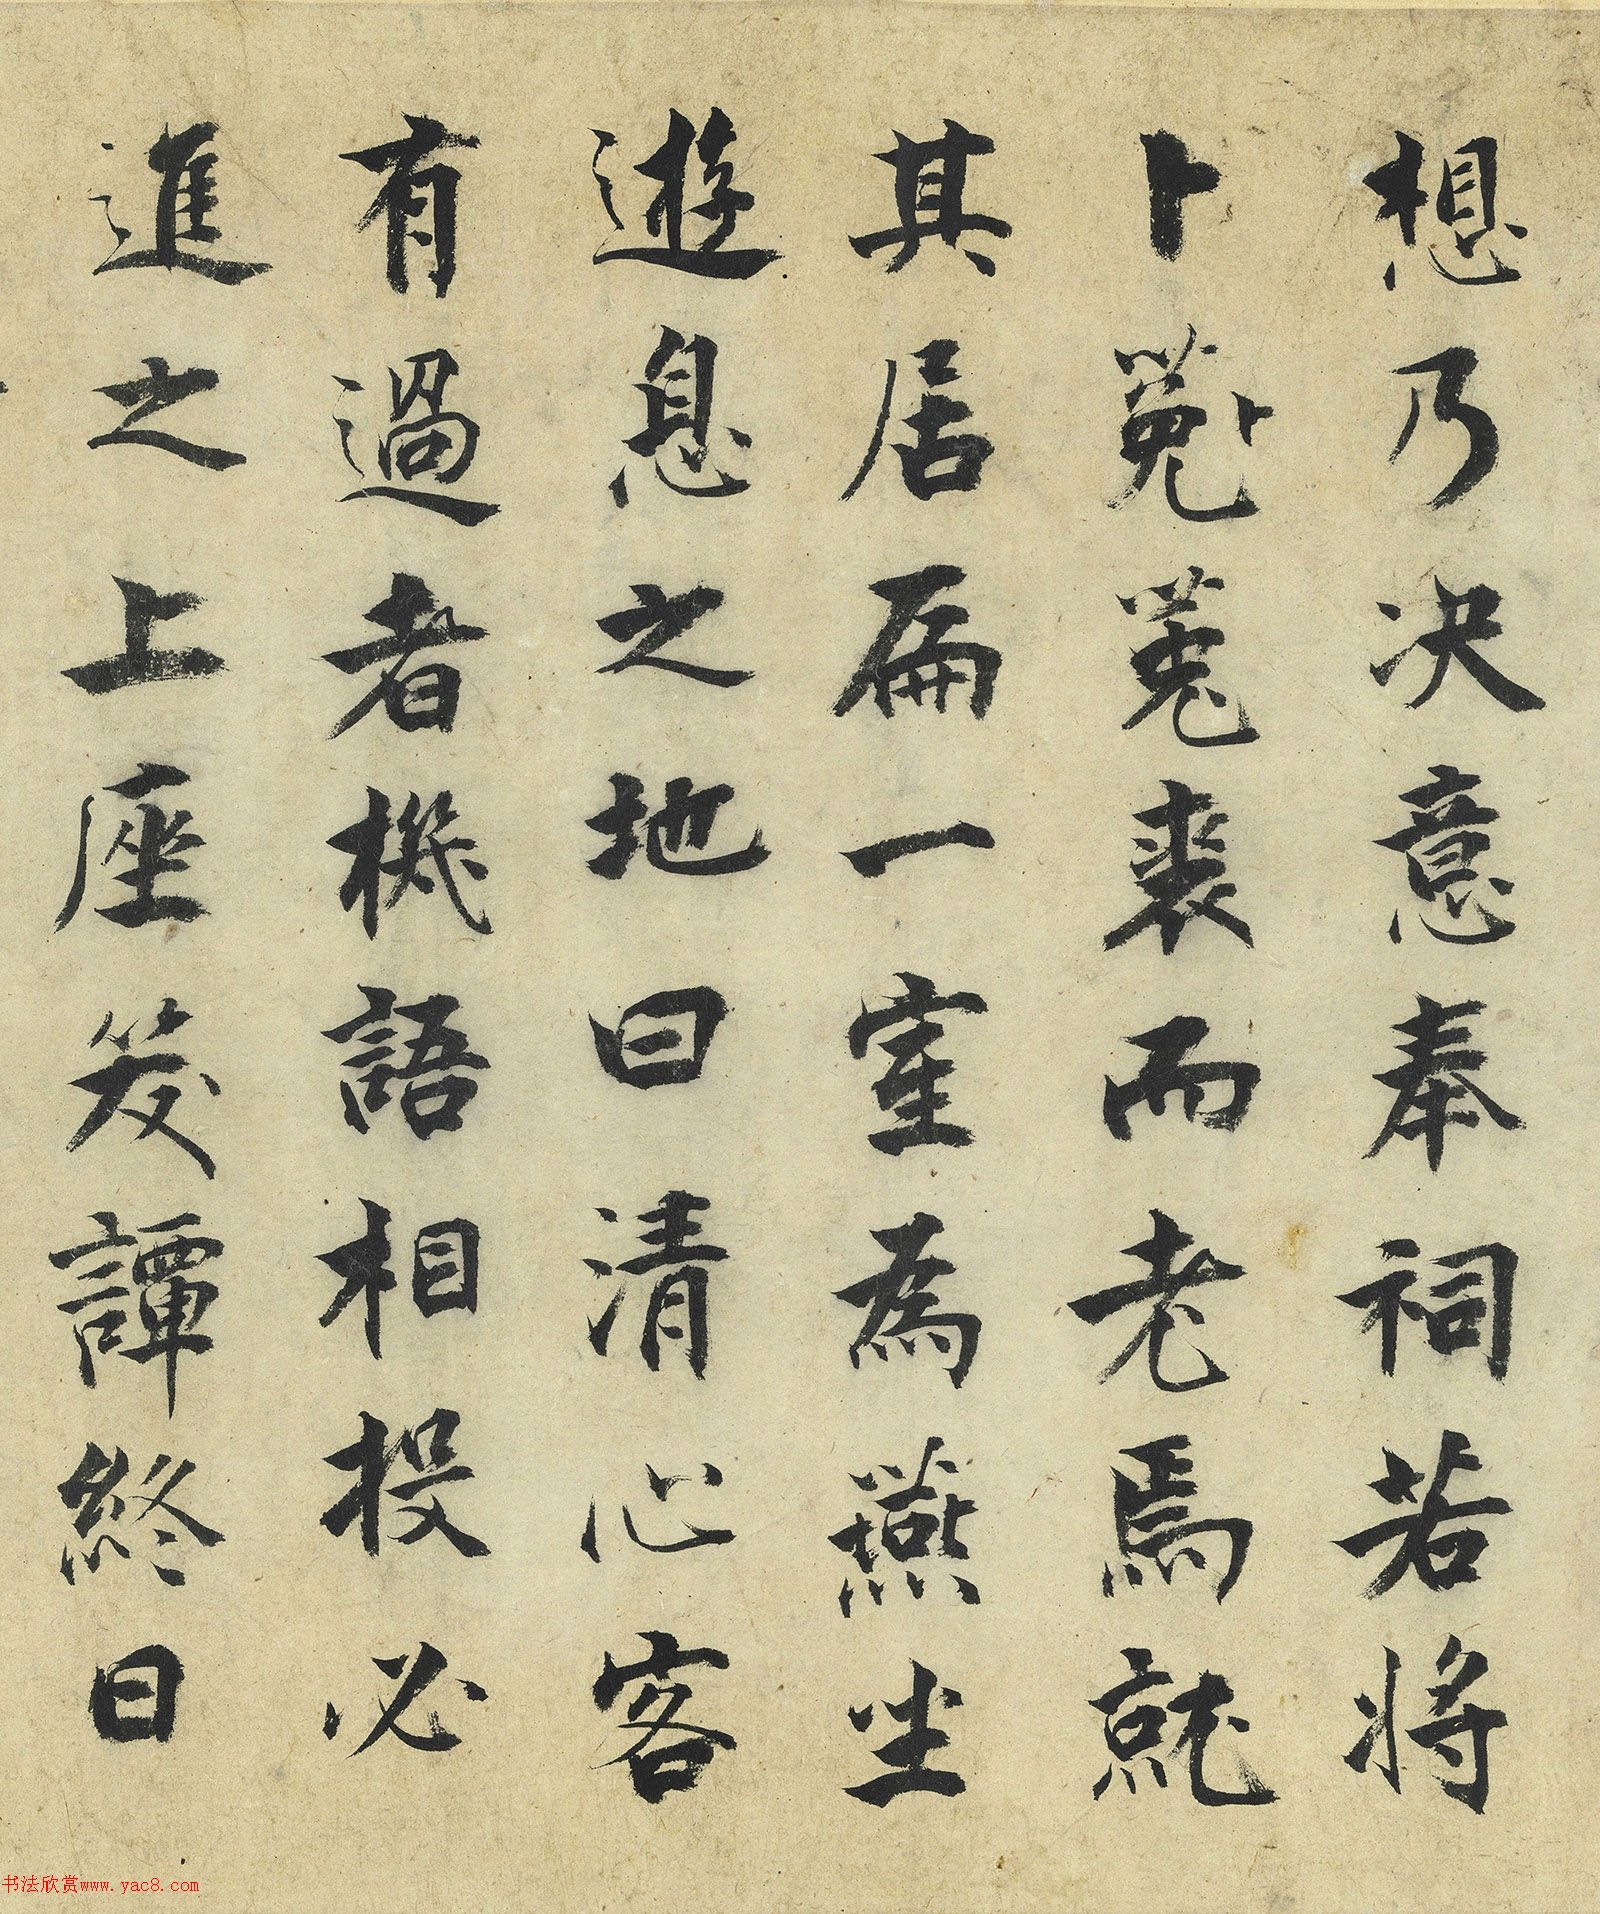 想乃决意奉祠若將
卜菟菟裘而老焉就
其居扁一室為燕坐
遊息之地曰清心客
有過者機語相投必
進之上座笑譚終日
书法欣赏www.yac8.com